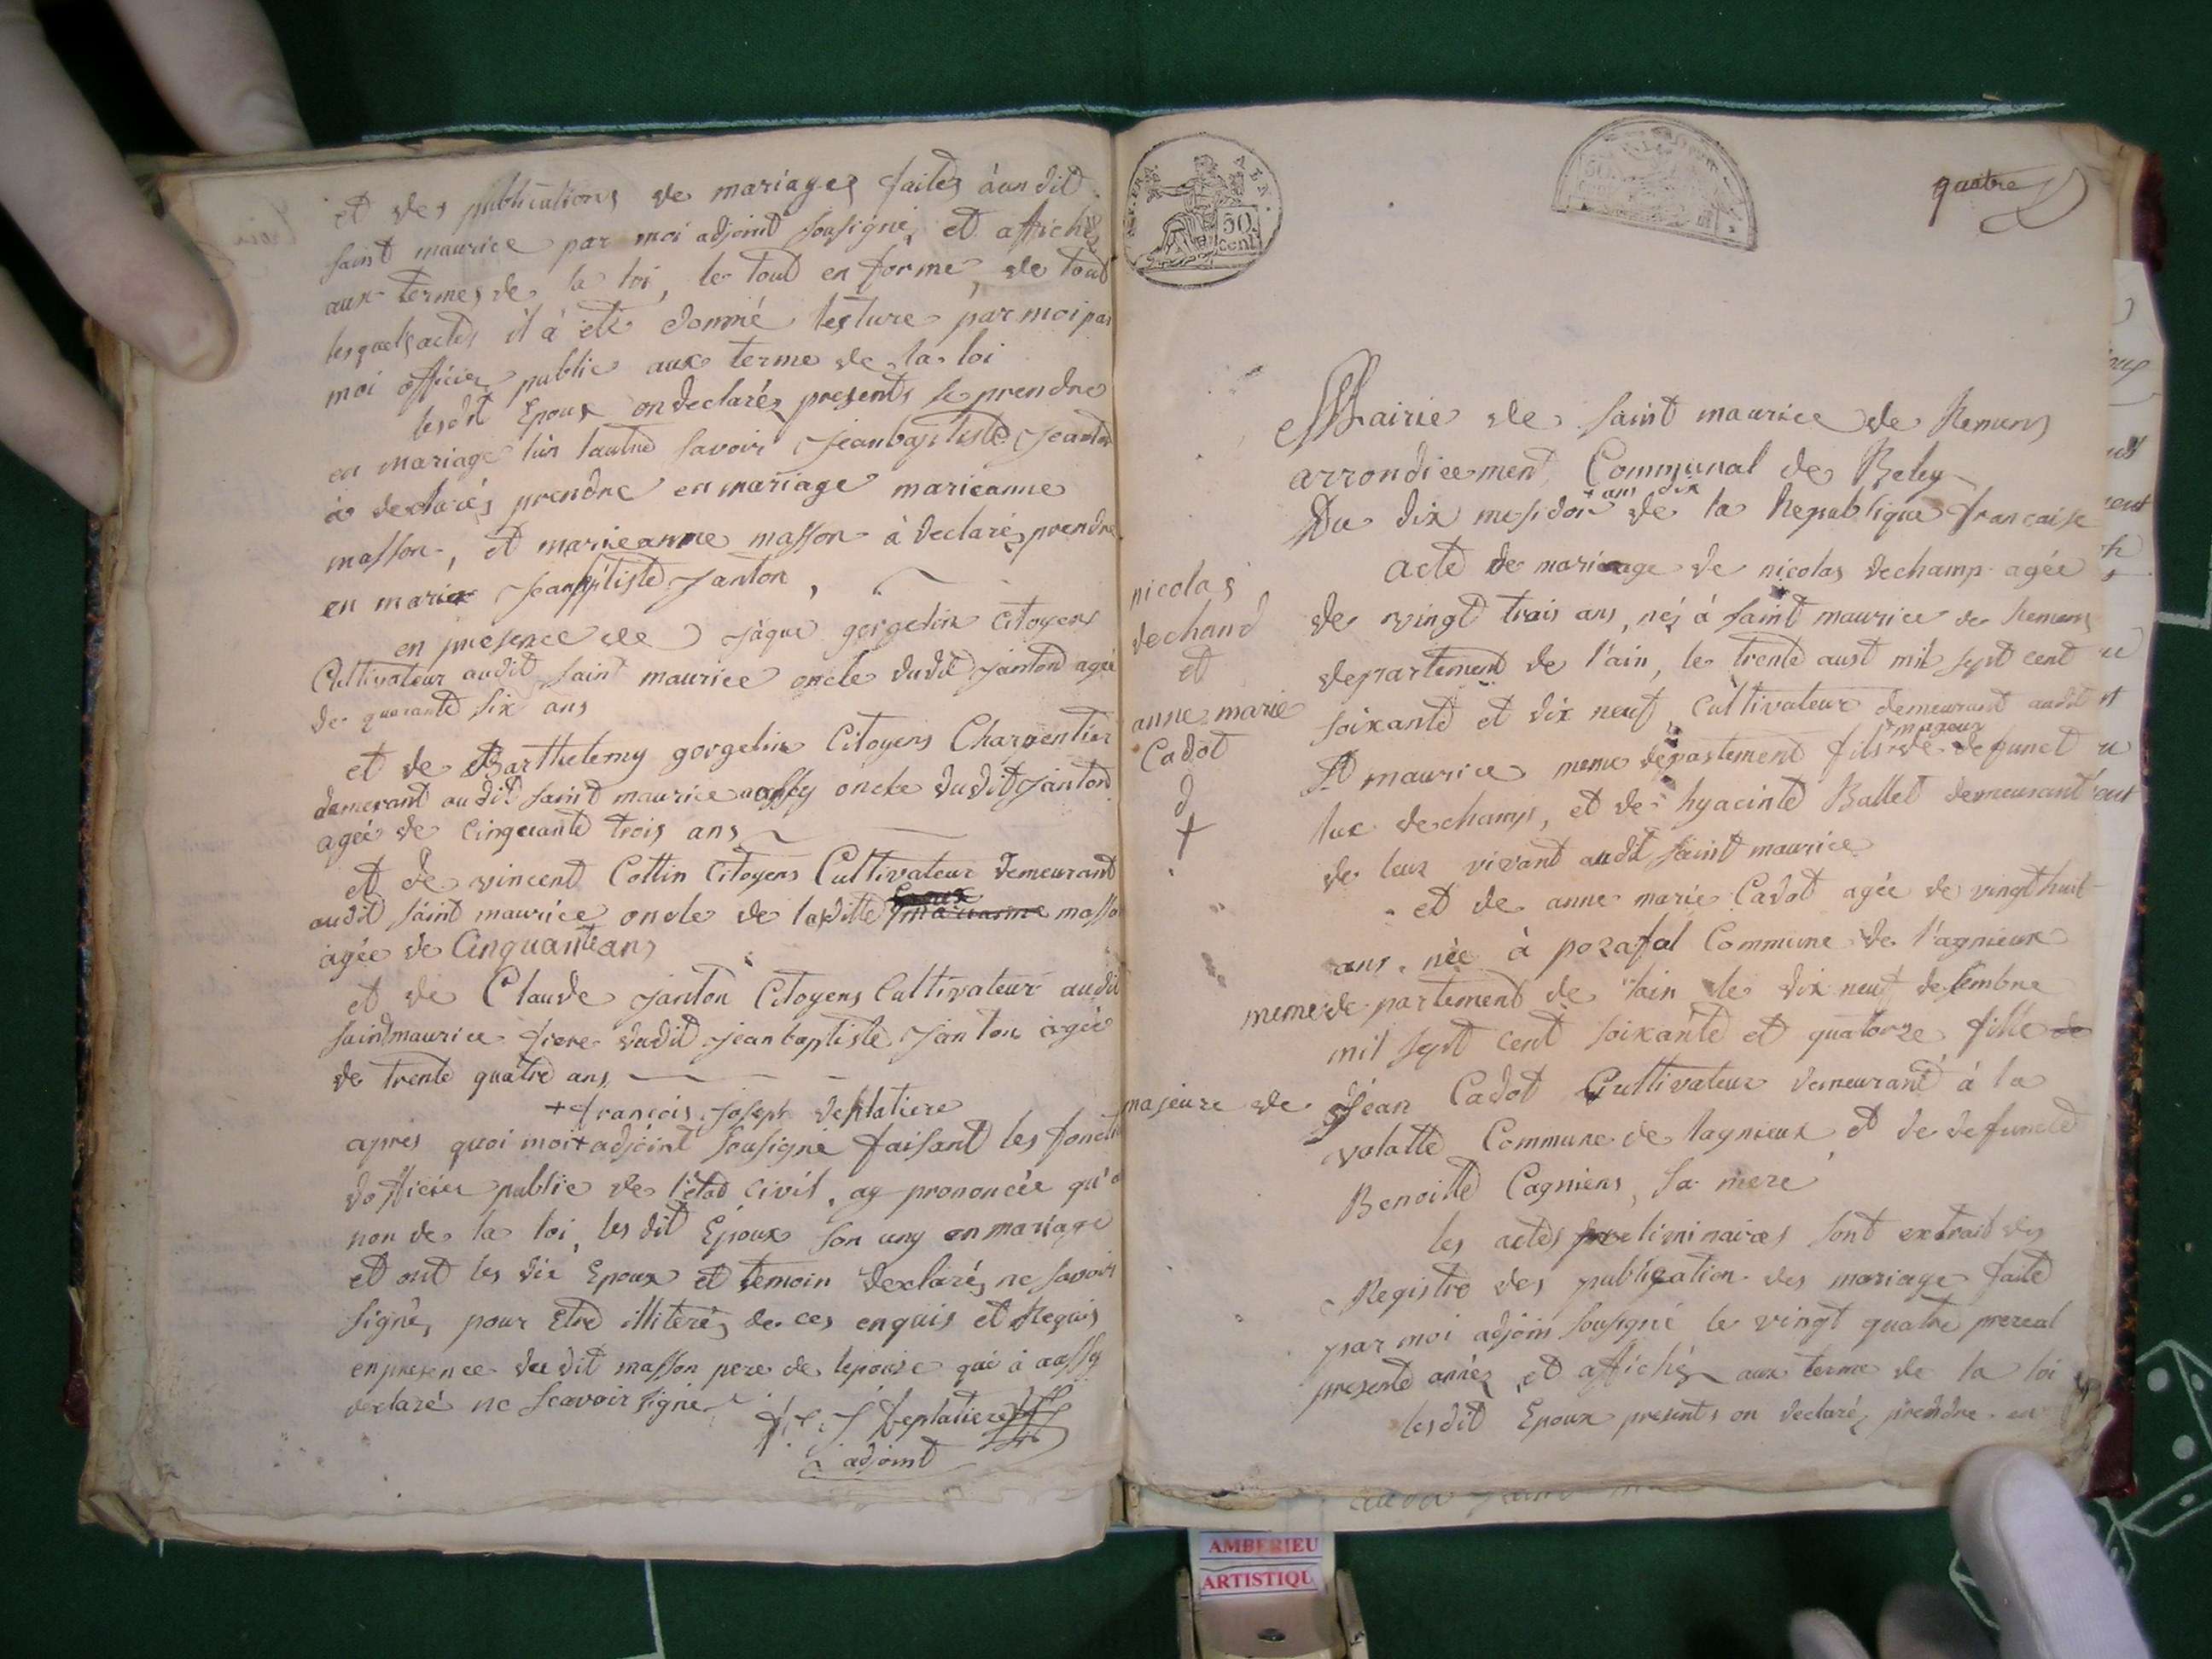 et des publications de mariages faites àundit
saint maurice par moi adjoint sousigné, et affiché
aux termes de la loi, le tout en forme, de tout
lesquels actes il à eté donné lecture par moi par
moi officier public aux terme de la loi
lesdit Epoux on declarés presents se prendre
en mariage lun lautre savoir jeanbaptiste Jeanton
à declarés prendre en mariage marieanne
masson, et marieanne masson à declarés prendre
en maria Jeanbptiste Janton,
en presence de jàque gorgelin Citoyens
Cultivateur audit saint maurice oncle dudit janton agée
de quarante six ans
et de Barthelemy gorgelin Citoyens Charpentier
demerant audit saint maurice aussy oncle dudit janton
agée de Cinquante trois ans
et de vincent Cottin Citoyens Cultivateur demeurant
audit saint maurice oncle de laditte masson
agée de Cinquante ans
et de Claude janton Citoyens Cultivateur audit
saintmaurice frere dudit jeanbaptiste janton agée
de trente quatre ans
+ françois joseph deplatiere
apres quoi moi + adjoint sousigné faisant les fonctio
dofficier public de l'état civil, ay prononcée qu'a
non de la loi, les dit Epoux son uny en mariage
et ont les dix Epoux et temoin declarés ne savoir
signé, pour Etre illiterés de ces enquis et Requis
enpresence du dit masson pere de lepouse qui à aussy
declaré ne scavoir signé
deplatiere
adjoint
50
cent
quatre
Mairie de saint maurice de Remens
arrondicement Communal de Beley
+ an dix
Du dix mesidor de la Republique francaise
acte de mariage de nicolas dechamp agée
nicolas
dechand
et
anne marie
Cadot
de vingt trais ans, né à saint maurice de Remens
departement de l'ain, le trente aust mil sept cent
soixante et dix neuf, Cultivateur demeurant audit
+ mageur
St maurice meme departement fils de defunct
luc dechamps, et de hyacinte Ballet demeurant
de leur vivant audit saint maurice
et de anne marie Cadot agée de vingt huit
ans, née à pozafol Commune de l'agnieux
meme departement de lain le dix neuf desembre
mil sept cent soixante et quatorze fille de
majeure de jéan Cadot Cultivateur demeurant à la
valatte Commune de lagnieux et de defuncte
Benoitte Cagniens, sa mere
les actes preliminaires sont extrait des
Registre des publication des mariage faite
par moi adjoin sousigné le vingt quatre prereal
presente année, et affichés aux terme de la loi
lesdit Epoux presents on declarés prendre en
AMBERIEU
ARTISTIQU